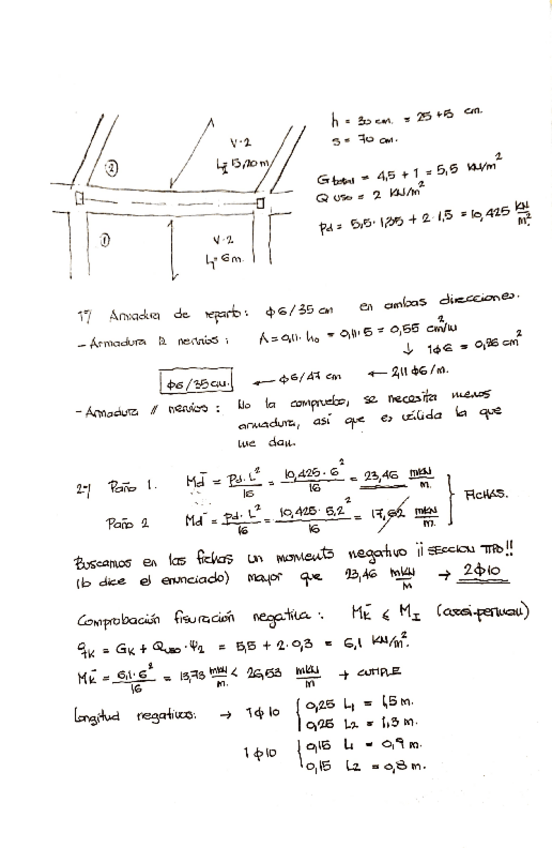 h = 30 cm. = 25 + 5 cm.
s = 70 cm.
V-2
L2 = 5,20 m
②
G total = 4,5 + 1 = 5,5 KN/m²
Q uso = 2 KN/m²
Pd = 5,5 · 1,35 + 2 · 1,5 = 10,425 KN/m²
①
V-2
L1 = 6 m.
1º) Armadura de reparto: Φ6/35 cm en ambas direcciones.
- Armadura ⊥ nervios: A = 0,11 · ho = 0,11 · 5 = 0,55 cm²/m
↓ 1Φ6 = 0,26 cm²
Φ6/35cm. ← Φ6/47 cm ← 2,11 Φ6/m.
- Armadura // nervios: No la compruebo, se necesita menos
armadura, así que es válida la que
me dan.
2º) Paño 1. Md⁻ = Pd · L²/16 = 10,425 · 6²/16 = 23,46 mKN/m.
Paño 2 Md⁻ = Pd · L²/16 = 10,425 · 5,2²/16 = 17,62 mKN/m.
FICHAS.
Buscamos en las fichas un momento negativo ¡¡ SECCION TIPO!!
(lo dice el enunciado) mayor que 23,46 mKN/m → 2Φ10
Comprobación fisuración negativa: Mk⁻ ≤ MI (casi-perman)
qk = Gk + Quso · Ψ2 = 5,5 + 2 · 0,3 = 6,1 KN/m².
Mk⁻ = 6,1 · 6²/16 = 13,73 mKN/m. < 26,53 mKN/m → CUMPLE
Longitud negativos: → 1Φ10 { 0,25 L1 = 1,5 m.
0,25 L2 = 1,3 m.
1Φ10 { 0,15 L1 = 0,9 m.
0,15 L2 = 0,8 m.